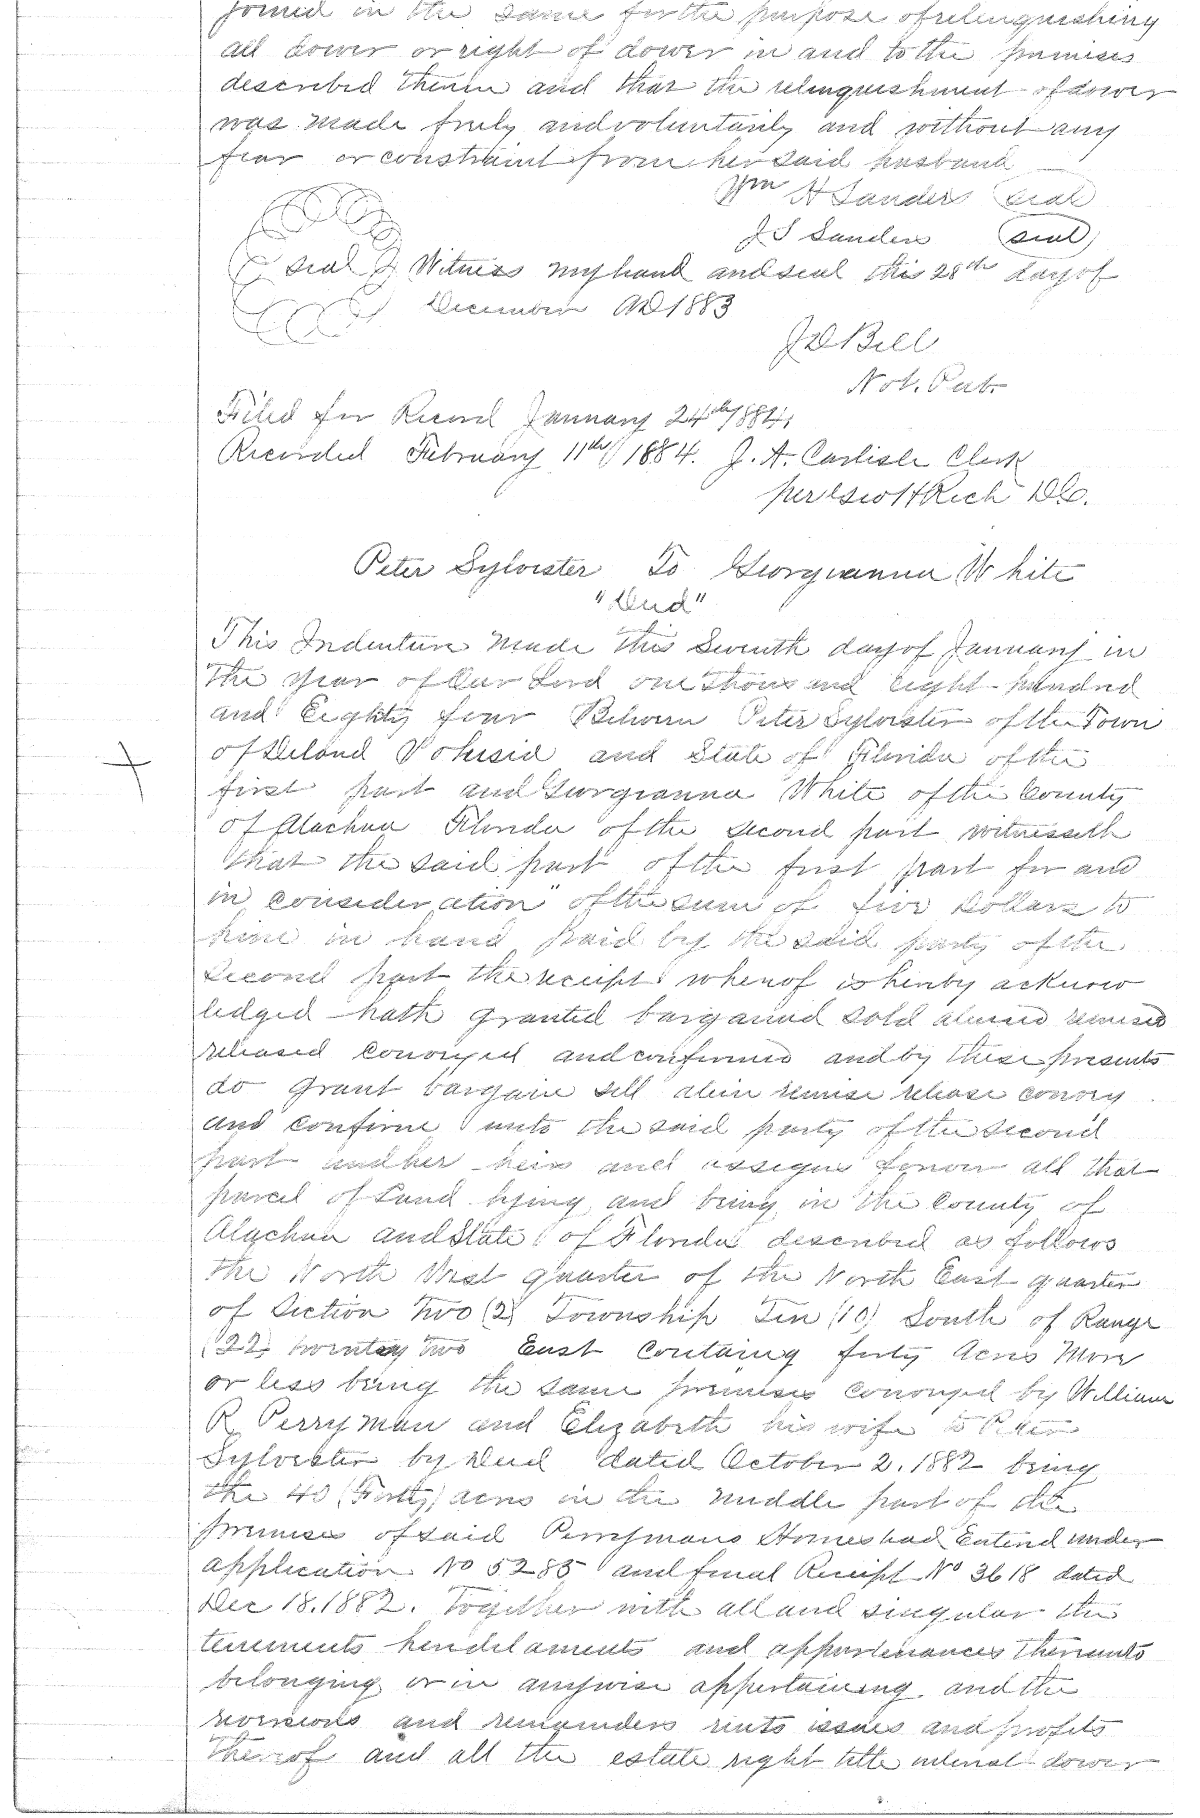 joined in the same for the purpose of relinquishing
all dower or right of dower in and to the premises
described therein and that the relinquishment of dower
was made freely and voluntarily and without any
fear or constraint from her said husband
Wm H Sanders seal
J S Sanders seal
seal Witness my hand and seal this 28th day of
December AD 1883
J D Bell
Not. Pub.
Filed for Record January 24th 1884,
Recorded February 11th 1884. J. A. Carlisle Clerk
per Geo H Rich D.C.
Peter Sylvester To Georgianna White
"Deed"
This Indenture made this Seventh day of January in
the year of Our Lord one thousand eight hundred
and Eighty four Between Peter Sylvester of the Town
of Deland Volusia and State of Florida of the
first part and Georgianna White of the County
of Alachua Florida of the second part witnesseth
that the said part of the first part for and
in consideration of the sum of five Dollars to
him in hand paid by the said party of the
second part the receipt whereof is hereby acknow
ledged hath granted bargained sold aliened remised
released conveyed and confirmed and by these presents
do grant bargain sell alien remise release convey
and confirm unto the said party of the second
part and her heirs and assigns forever all that
parcel of Land lying and being in the County of
Alachua and State of Florida described as follows
the North West quarter of the North East quarter
of Section Two (2) Township Ten (10) South of Range
(22) twenty two East containg forty Acres More
or less being the same premises conveyed by William
R Perryman and Elizabeth his wife to Peter
Sylvester by Deed dated October 2. 1882 being
the 40 (Forty) acres in the middle part of the
premises of said Perrymans Homestead Entered under
application No 5285 and final Receipt No 3618 dated
Dec 18. 1882. Together with all and singular the
tenements hereditaments and appurtenances thereunto
belonging or in anywise appertaining and the
reversions and remainders rents issues and profits
thereof and all the estate right title interest dower